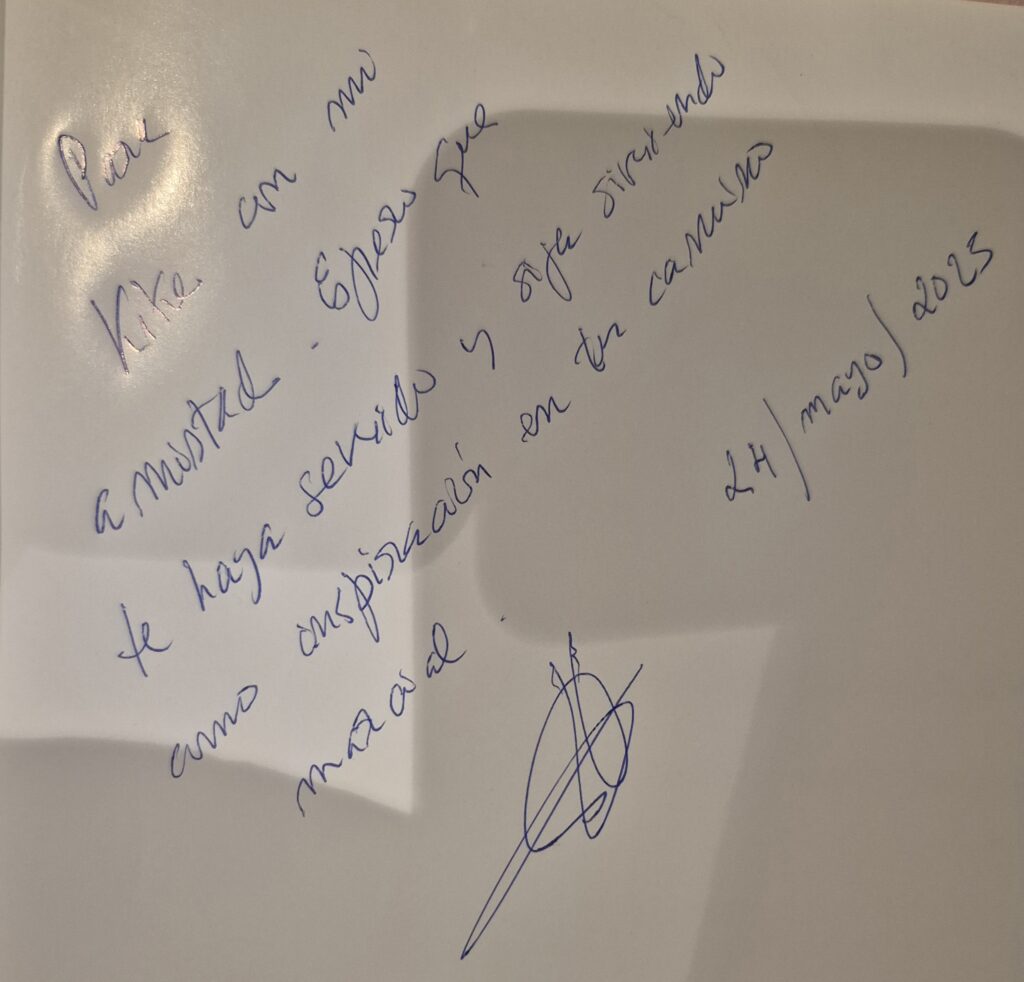 Para
Kike con mi
amistad. Espero que
te haya servido y siga sirviendo
como inspiración en tu camino
marcial.
24/mayo/2025